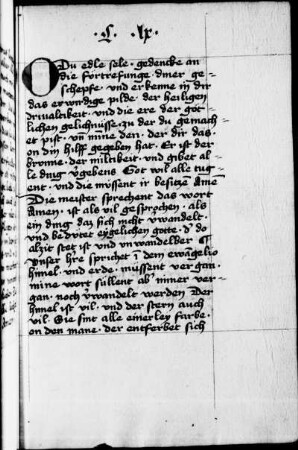 · L · ix ·
O Du edle sele · gedencke an
die fortrefunge diner ge-
schepfe · vnd erkenne in dir
das erwirdige pilde · der heiligen
driualtikeit · vnd die ere der got-
lichen gelichnüsse · zu der du gemach-
et pist · vnd mine den · der dir das
on din hilff gegeben hat · Er ist der
bronne · der miltikeit · vnd gibet al-
le ding vergebens Got wil alle tug-
ent · vnd die müssent ir besitzen Ame
Die meister sprechent das wort
Amen · ist als vil gesprochen · als
ein ding daz sich nicht verwandelt ·
vnd bedütet eygelichen gotte · der do
alzit stet ist vnd vnwandelber ¶
Vnser hre sprichet in dem ewangelio
himel vnd erde · mussent vergan ·
mine wort sullent aber nimer ver-
gan · noch verwandelt werden Der
himel ist vil · vnd der stern auch
vil · Sie sint alle einerley farbe ·
on den mane · der entferbet sich